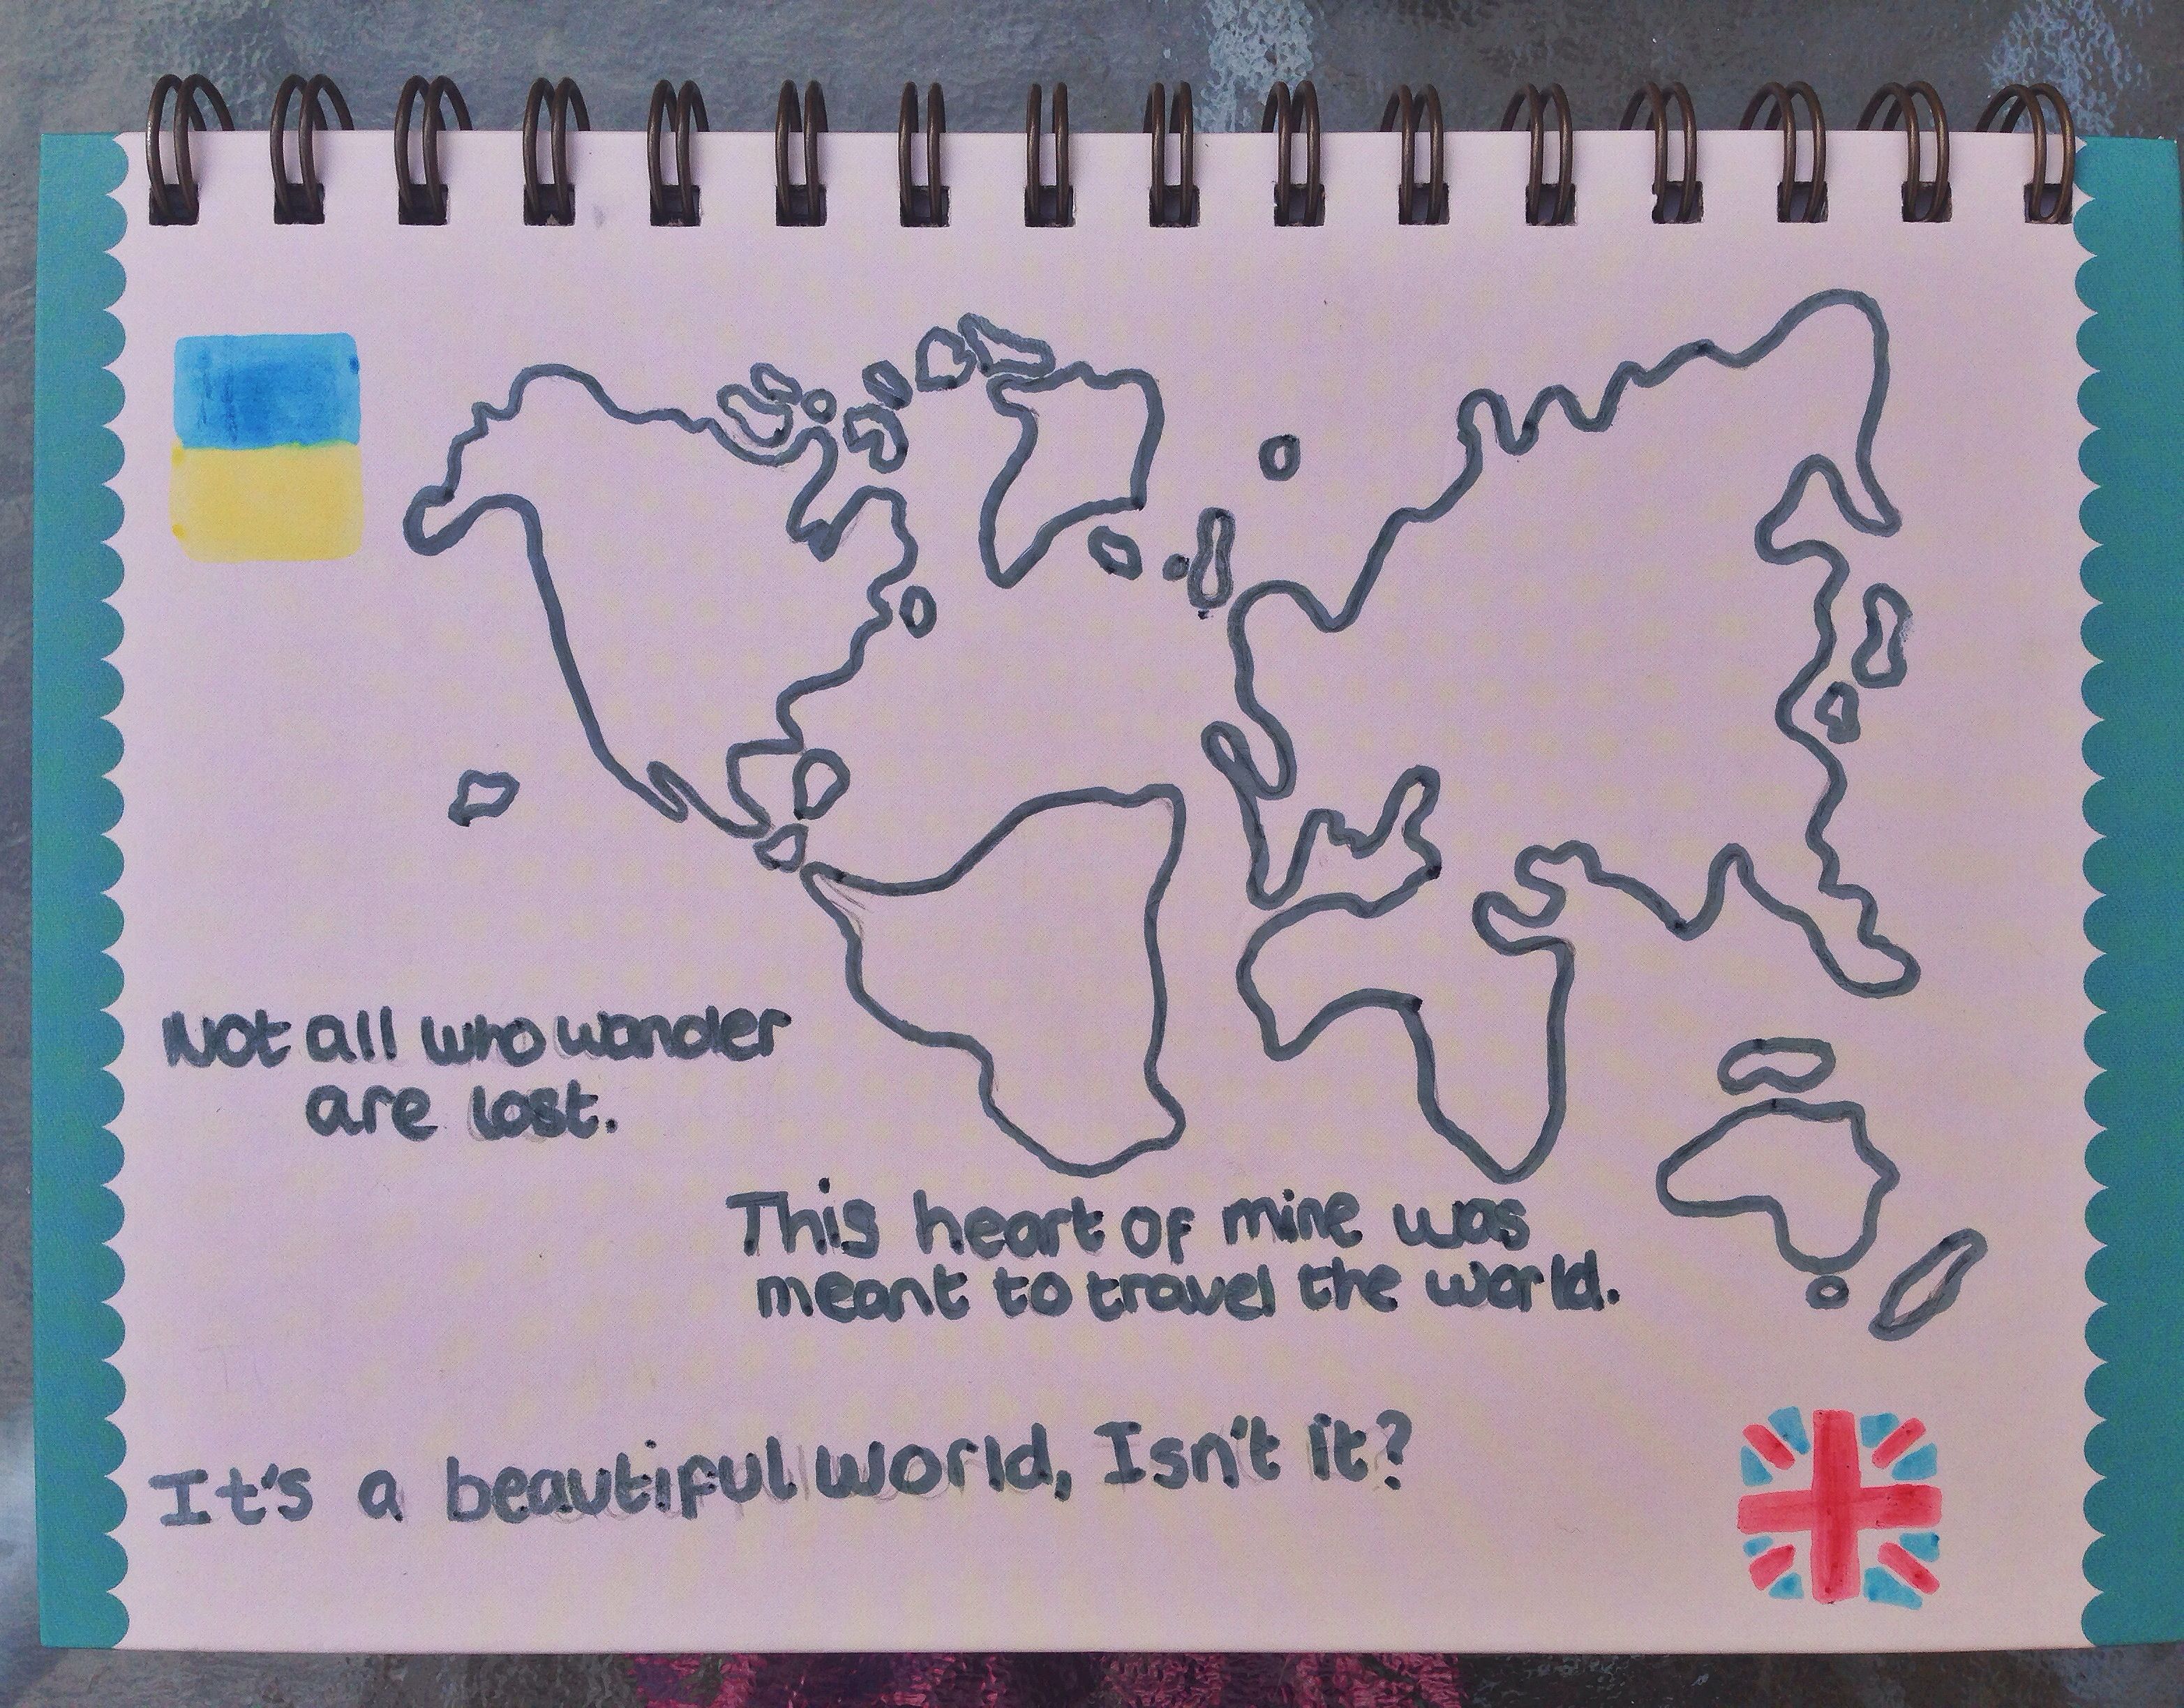 Not all who wander
are lost.
This heart of mine was
meant to travel the world.
It's a beautiful world, Isn't it?